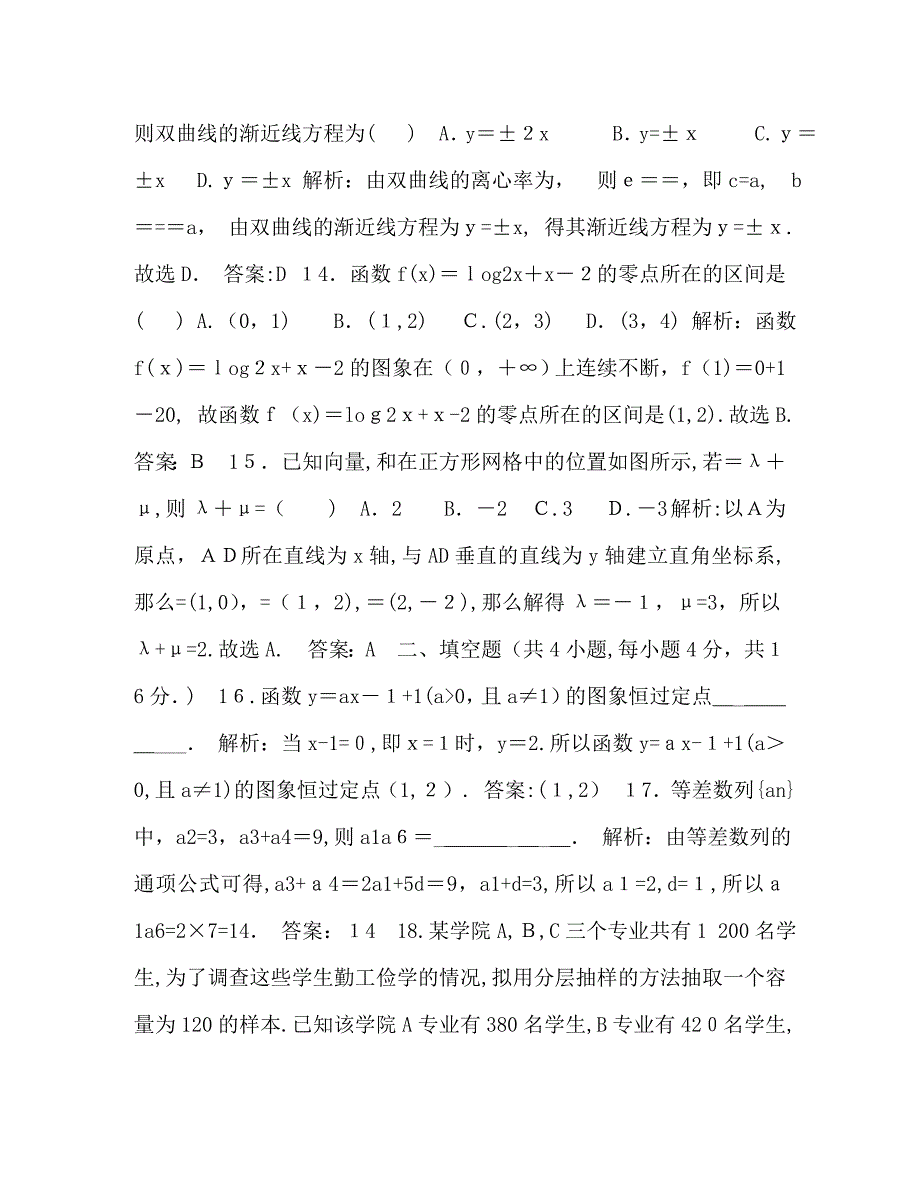 则双曲线的渐近线方程为(　 ) A.y＝±2x　　 B.y=±x　　 C.y＝
±x　 D.y＝±x 解析：由双曲线的离心率为，　则e＝＝,即c=a,　b
＝=＝a， 由双曲线的渐近线方程为y=±x, 得其渐近线方程为y=±x.
故选D． 答案:D 14．函数f(x)＝log2x＋x－2的零点所在的区间是
(　 ) A.（0，1)　　B．(1,2)　 C.(2，3)　 D．(3，4) 解析：函数
f(x)＝log2x+x－2的图象在（0，＋∞)上连续不断，f（1)＝0+1
－20, 故函数f（x)＝log2x+x-2的零点所在的区间是(1,2).故选B.
答案：B　15．已知向量,和在正方形网格中的位置如图所示,若＝λ＋
μ,则λ＋μ=（　　) A．2　 B．－2　C.3　 D.－3解析:以A为
原点，AD所在直线为x轴,与AD垂直的直线为y轴建立直角坐标系,
那么=(1,0），=（1，2),＝(2,－2),那么解得λ＝－1，μ=3，所以
λ+μ=2.故选A.　答案：A　二、填空题（共4小题,每小题4分，共1
6分.)　16.函数y＝ax－1+1(a>0，且a≠1）的图象恒过定点_______
_____． 解析：当x-1=0,即x=1时，y＝2.所以函数y=ax-1+1(a＞
0,且a≠1)的图象恒过定点（1,2）. 答案:(1,2)　17．等差数列{an}
中，a2=3，a3+a4＝9,则a1a6＝_____________． 解析：由等差数列的
通项公式可得,a3+a4＝2a1+5d＝9，a1+d=3,所以a1=2,d=1,所以a
1a6=2×7=14． 答案：14　18.某学院A,B,C三个专业共有1 200名学
生,为了调查这些学生勤工俭学的情况,拟用分层抽样的方法抽取一个容
量为120的样本.已知该学院A专业有380名学生,B专业有420名学生,